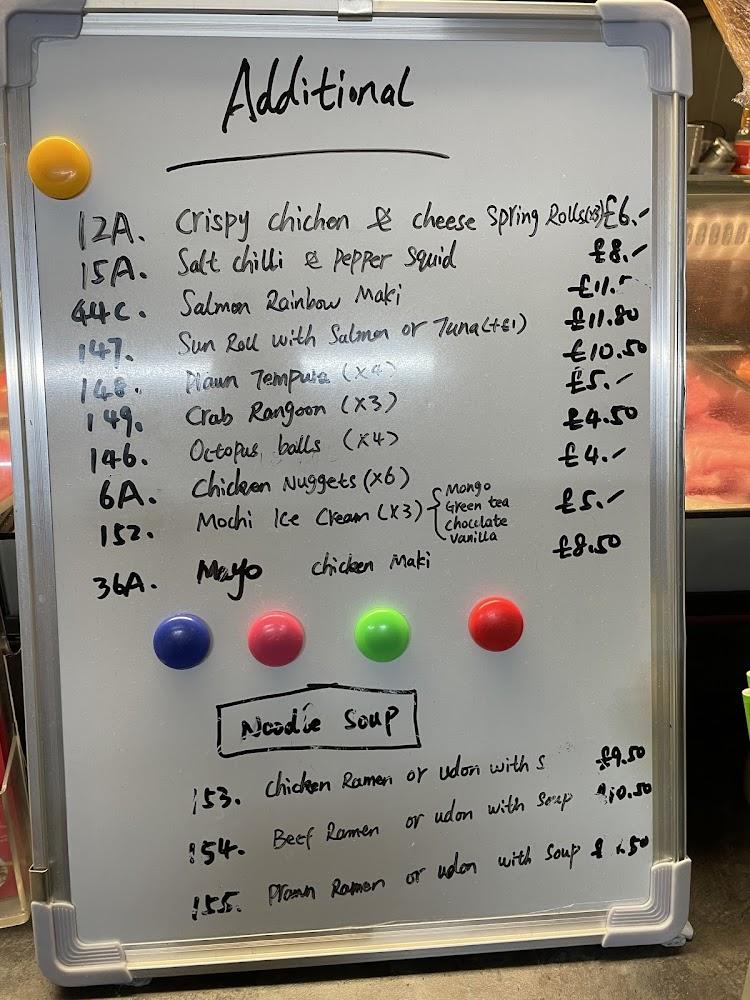 Additional
12A. Crispy chicken & cheese Spring Rolls(x3) £6.-
15A. Salt chilli & pepper Squid £8.-
44C. Salmon Rainbow Maki £11.-
147. Sun Roll with Salmon or Tuna (+£1) £11.80
148. Prawn Tempura (x4) £10.50
149. Crab Rangoon (x3) £5.-
146. Octopus balls (x4) £4.50
6A. Chicken Nuggets (x6) £4.-
152. Mochi Ice Cream (x3) £5.-
Mango
Green tea
chocolate
vanilla
36A. Mayo chicken Maki £8.50
Noodle Soup
153. Chicken Ramen or udon with S £9.50
154. Beef Ramen or udon with Soup 10.50
155. Prawn Ramen or udon with Soup £ .50